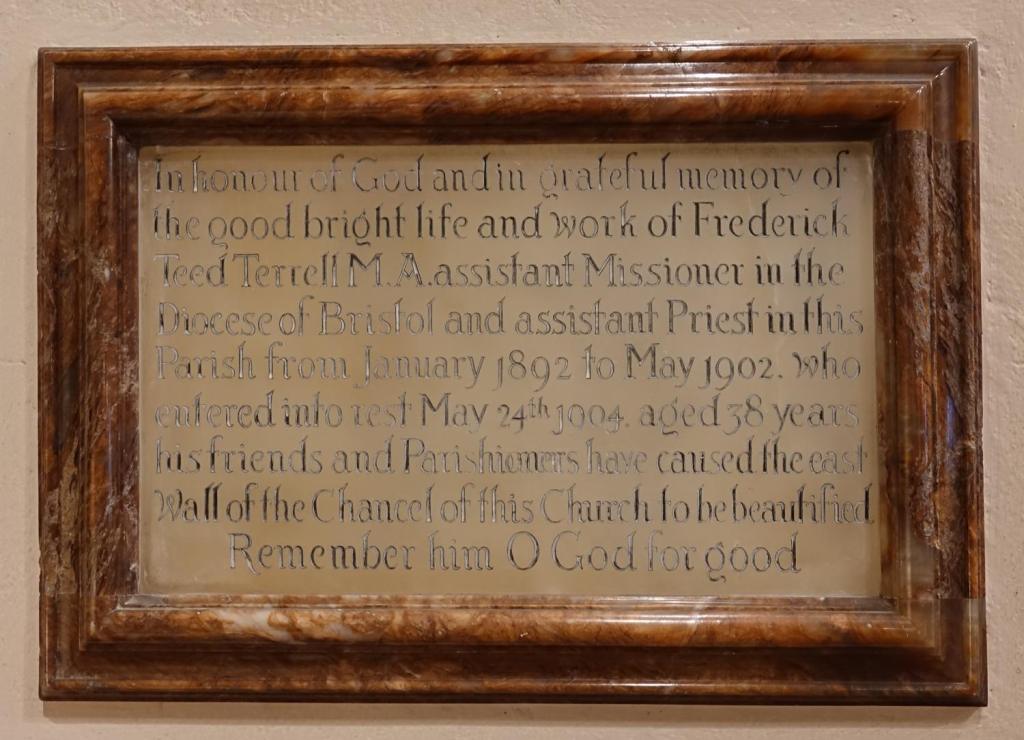 In honour of God and in grateful memory of
the good bright life and work of Frederick
Teed Terrell M.A. assistant Missioner in the
Diocese of Bristol and assistant Priest in this
Parish from January 1892 to May 1902. who
entered into rest May 24th 1904. aged 38 years
his friends and Parishioners have caused the east
Wall of the Chancel of this Church to be beautified
Remember him O God for good